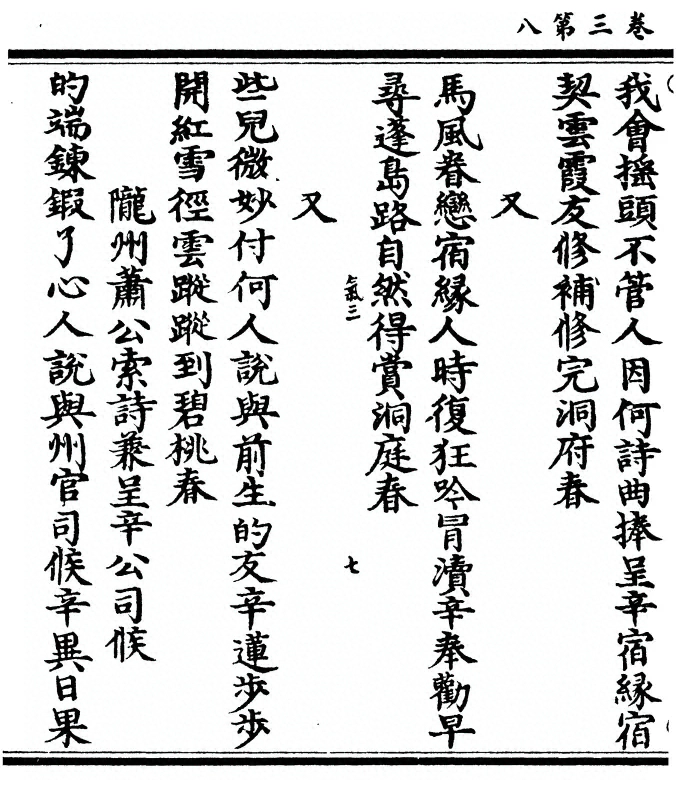 卷三第八
我會搖頭不管人因何詩曲捧呈辛宿緣宿
契雲霞友修補修完洞府春
又
馬風眷戀宿緣人時復狂吟冒瀆辛奉勸早
尋蓬島路自然得賞洞庭春
氣三
七
又
些兒微妙付何人說與前生的友辛蓮步步
開紅雪徑雲蹤蹤到碧桃春
隴州蕭公索詩兼呈辛公司候
的端鍊鍜了心人說與州官司候辛異日果